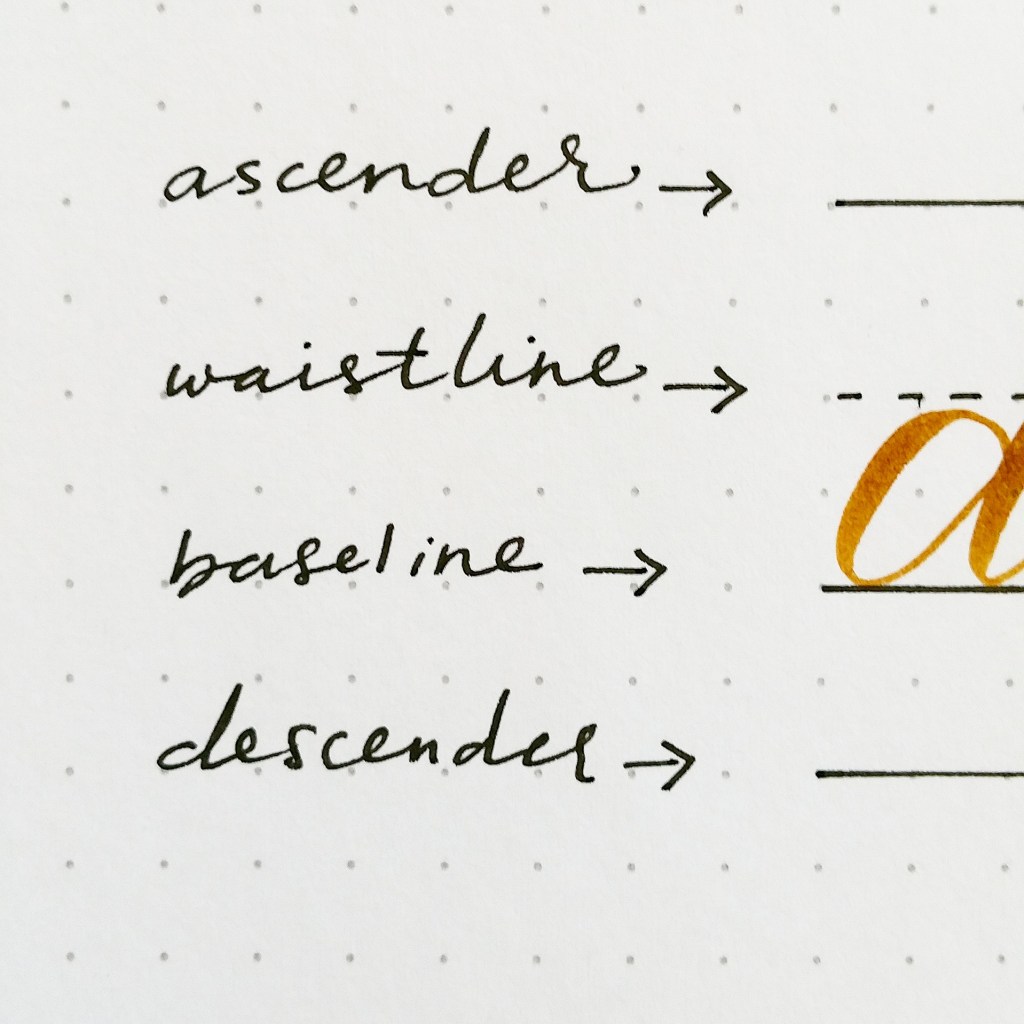 ascender →
waistline →
baseline →
a
descender →